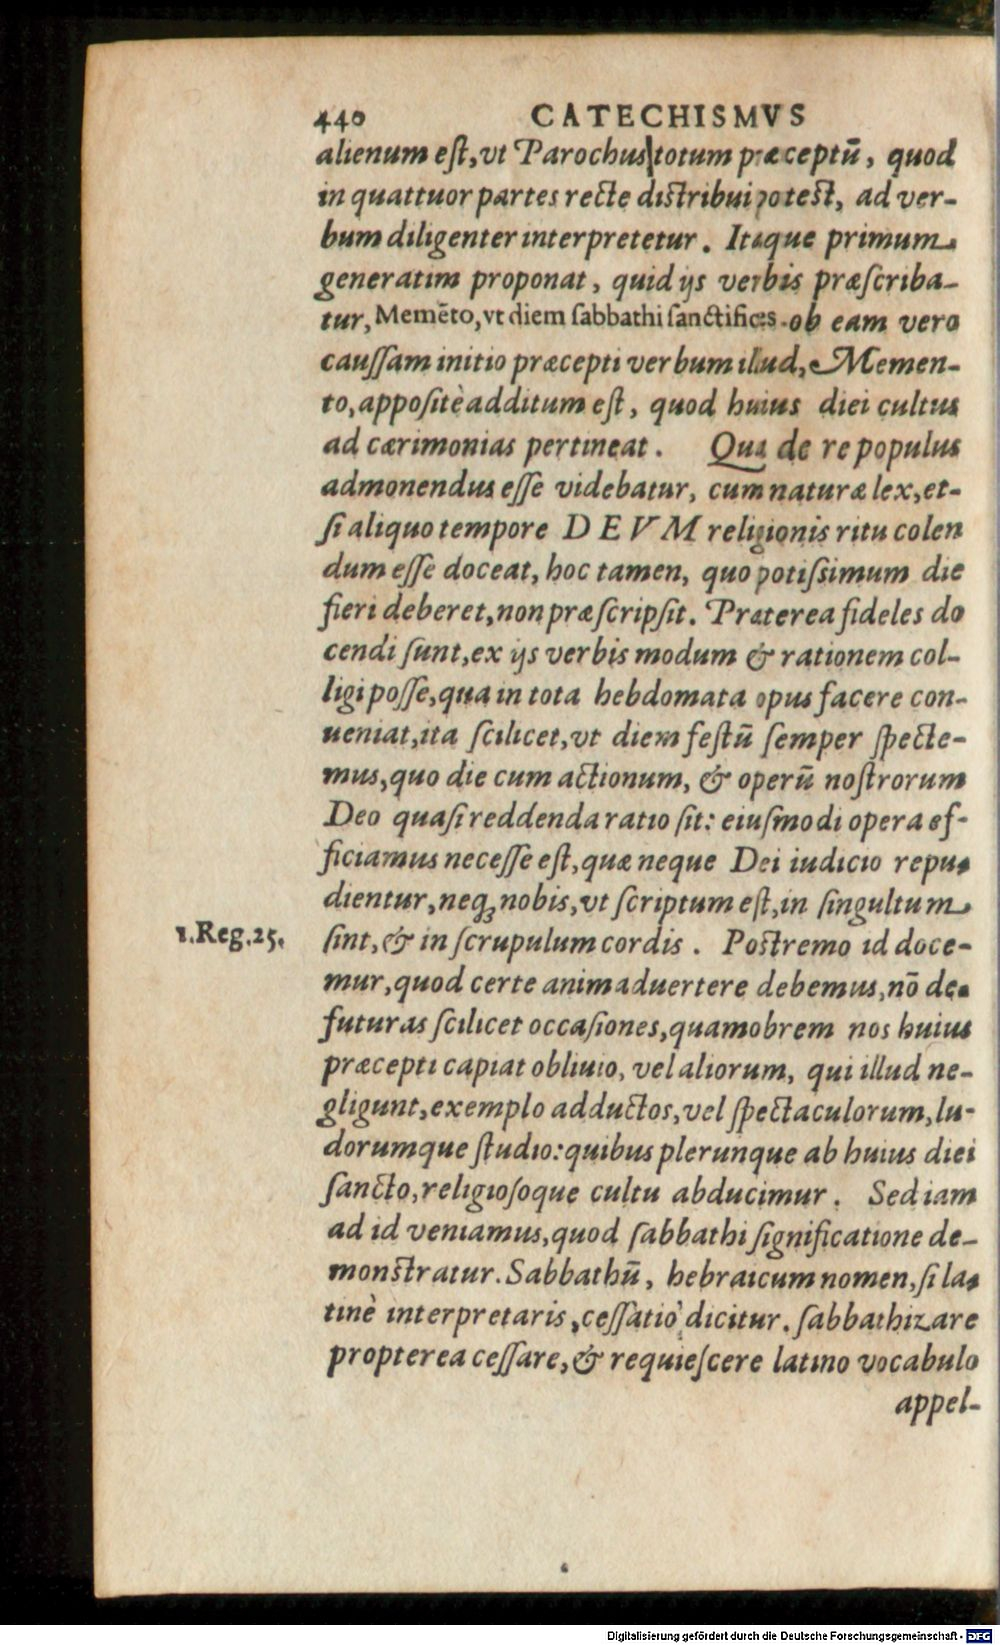 440 CATECHISMVS
alienum est, vt Parochus totum præceptũ, quod
in quattuor partes recte distribui potest, ad ver-
bum diligenter interpretetur. Itaque primum
generatim proponat, quid ijs verbis præscriba-
tur, Memẽto, vt diem sabbathi sanctifices. ob eam vero
caussam initio præcepti verbum illud, Memen-
to, appositè additum est, quod huius diei cultus
ad cærimonias pertineat. Qua de re populus
admonendus esse videbatur, cum naturæ lex, et-
si aliquo tempore DEVM religionis ritu colen
dum esse doceat, hoc tamen, quo potissimum die
fieri deberet, non præscripsit. Præterea fideles do
cendi sunt, ex ijs verbis modum & rationem col-
ligi posse, qua in tota hebdomata opus facere con-
ueniat, ita scilicet, vt diem festũ semper specte-
mus, quo die cum actionum, & operũ nostrorum
Deo quasi reddenda ratio sit: eiusmodi opera ef-
ficiamus necesse est, quæ neque Dei iudicio repu-
dientur, neq; nobis, vt scriptum est, in singultum
1. Reg. 25. sint, & in scrupulum cordis. Postremo id doce-
mur, quod certe animaduertere debemus, nõ de-
futuras scilicet occasiones, quamobrem nos huius
præcepti capiat obliuio, vel aliorum, qui illud ne-
gligunt, exemplo adductos, vel spectaculorum, lu-
dorumque studio: quibus plerunque ab huius diei
sancto, religiosoque cultu abducimur. Sed iam
ad id veniamus, quod sabbathi significatione de-
monstratur. Sabbathũ, hebraicum nomen, si la-
tinè interpretaris, cessatio dicitur. sabbathizare
propterea cessare, & requiescere latino vocabulo
appel-
Digitalisierung gefördert durch die Deutsche Forschungsgemeinschaft - DFG